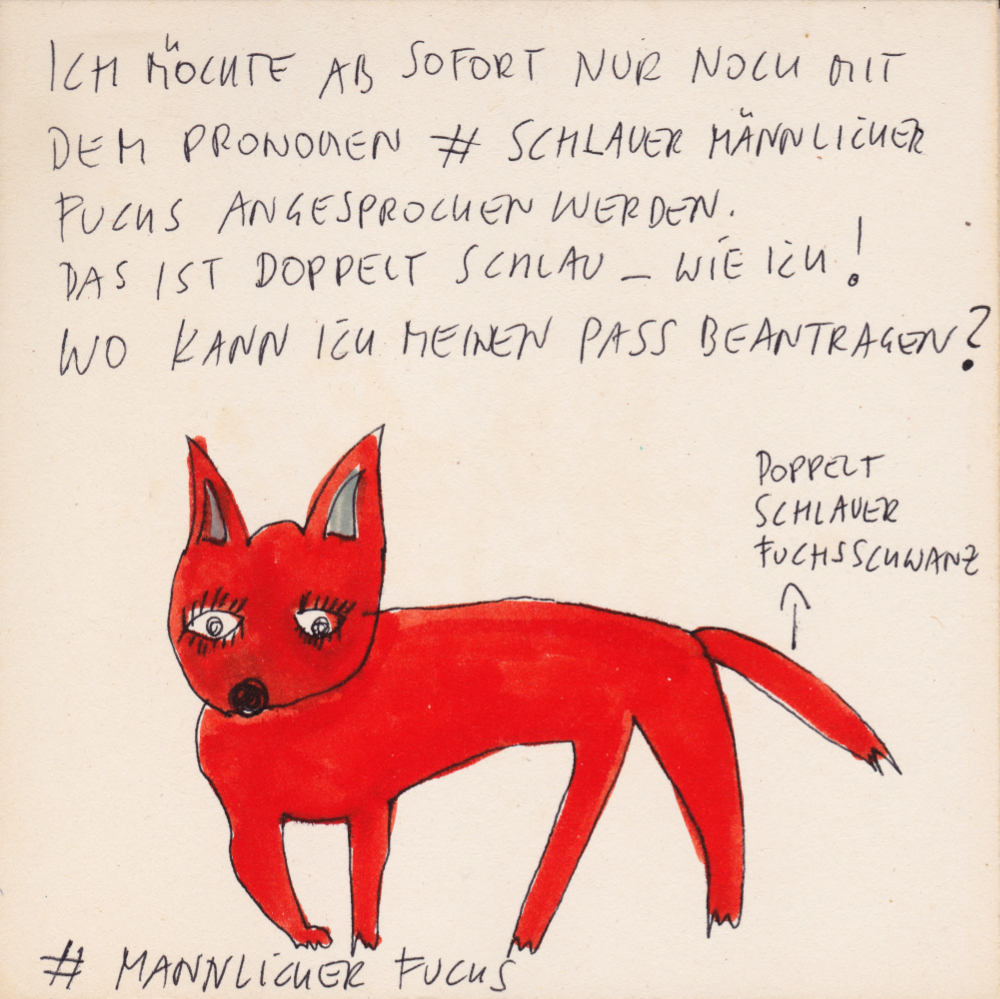 ICH MÖCHTE AB SOFORT NUR NOCH MIT
DEM PRONOMEN # SCHLAUER MÄNNLICHER
FUCHS ANGESPROCHEN WERDEN.
DAS IST DOPPELT SCHLAU – WIE ICH!
WO KANN ICH MEINEN PASS BEANTRAGEN?
DOPPELT
SCHLAUER
FUCHSSCHWANZ
# MANNLICHER FUCHS